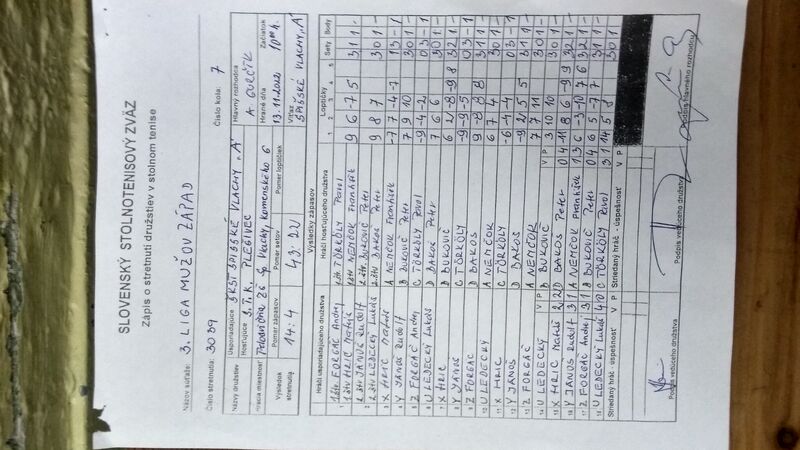 SLOVENSKÝ STOLNOTENISOVÝ ZVÄZ
Zápis o stretnutí družstiev v stolnom tenise
Názov súťaže: 3. LIGA MUŽOV ZÁPAD
Číslo stretnutia: 3039 Číslo kola: 7
Názvy družstiev Usporiadajúce ŠKST SPIŠSKÉ VLACHY "A" Hlavný rozhodca
Hosťujúce S.T.K. PLEŠIVEC A. GURČÍK
Hracia miestnosť Sp. Vlachy, Komenského 6 Hrané dňa Začiatok
13.11.2022 10 00 h
Výsledok stretnutia Pomer zápasov Pomer setov Pomer loptičiek Víťaz
14:4 43:22 SPIŠSKÉ VLACHY "A"
Výsledky zápasov
Hráči usporiadajúceho družstva Hráči hosťujúceho družstva Loptičky Sety Body
1 2 3 4 5
FORGÁČ Andrej TÖRKÖLY Pavol 9 6 -7 5 3 1 1 -
HRIC Matúš NEMČOK František
JÁNOŠ RUDOLF BUKOVIČ Peter
LEDECKÝ Lukáš BAKOŠ Peter 9 8 7 3 0 1 -
X HRIC Matúš A NEMČOK František -7 7 -4 -7 1 3 - 1
Y JÁNOŠ Rudolf B BUKOVIČ Peter 7 9 10 3 0 1 -
Z FORGÁČ Andrej C TÖRKÖLY Pavol -9 -4 -2 0 3 - 1
U LEDECKÝ Lukáš D BAKOŠ Peter 7 6 6 3 0 1 -
X HRIC B BUKOVIČ 6 2 -8 -9 8 3 2 1 -
Y JÁNOŠ C TÖRKÖLY -9 -9 -5 0 3 - 1
Z FORGÁČ D BAKOŠ 9 -8 8 8 3 1 1 -
U LEDECKÝ A NEMČOK 6 7 4 3 0 1 -
X HRIC C TÖRKÖLY -6 -4 -4 0 3 - 1
Y JÁNOŠ D BAKOŠ -9 2 5 5 3 1 1 -
Z FORGÁČ A NEMČOK 7 7 11 3 0 1 -
U LEDECKÝ B BUKOVIČ 3 10 10 3 0 1 -
V P V P
X HRIC Matúš 2 2 D BAKOŠ Peter 0 4 11 8 6 -9 9 3 2 1 -
Y JÁNOŠ Rudolf 3 1 A NEMČOK František 1 3 6 -3 -10 7 6 3 2 1 -
Z FORGÁČ Andrej 3 1 B BUKOVIČ Peter 0 4 6 5 -7 7 3 1 1 -
U LEDECKÝ Lukáš 4 0 C TÖRKÖLY Pavol 3 1 14 5 8 3 0 1 -
Striedaný hráč - úspešnosť V P Striedaný hráč - úspešnosť V P
Podpis vedúceho družstva Podpis vedúceho družstva Podpis hlavného rozhodcu